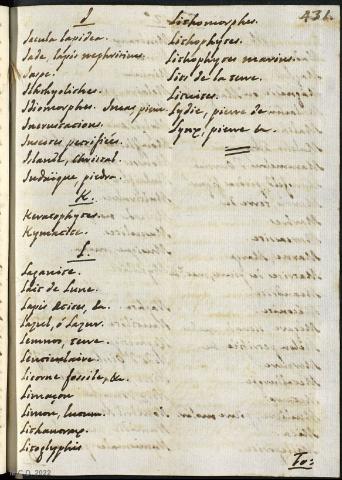 431.
J
Jacula lapidea.
Jade, lapis nephriticus.
Jaspe.
Ichthyolithes.
Idiomorphes.
Incrustations.
Insectes petrifiées.
Islande, christal.
Judaïque piedra.
K.
Keratophytes.
Kymatite.
L.
Lait de Lune.
Lapis &c.
Lazul, ó Lazur.
Lemnos, terre.
Lenticulaire.
Licorne fossile, &c.
Limaçon
Limon,
Litoglyphis
Lithomorphes.
Lithophytes.
Lithophytes marins.
Lits de la terre.
Lituites.
Lydie, pierre de
Lynx, pierre de.
To: